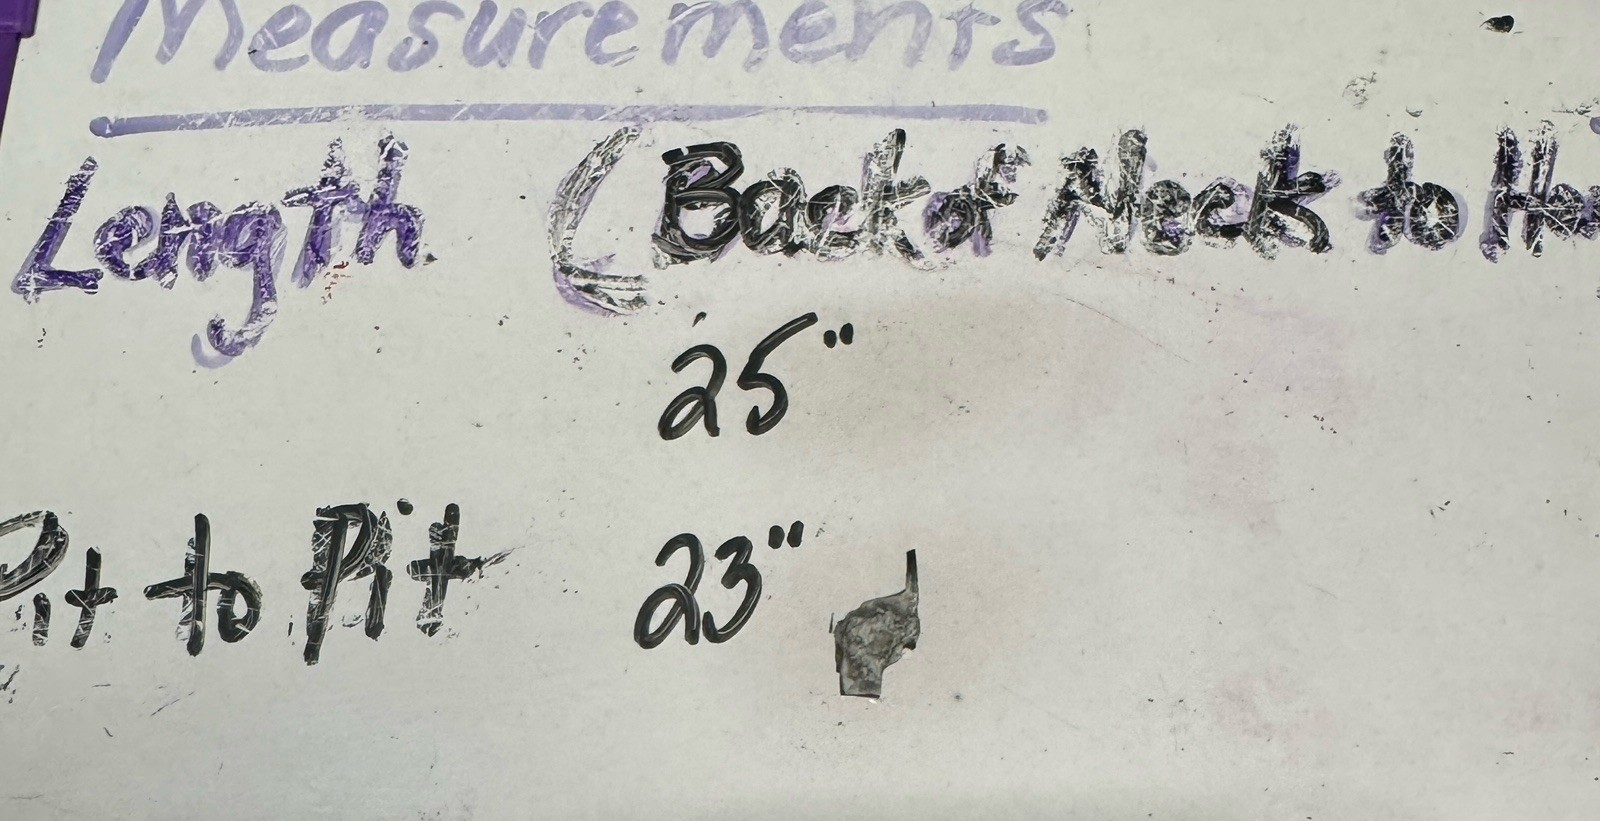 Measurements
Length (Back of Neck to
25"
Pit to Pit 23"